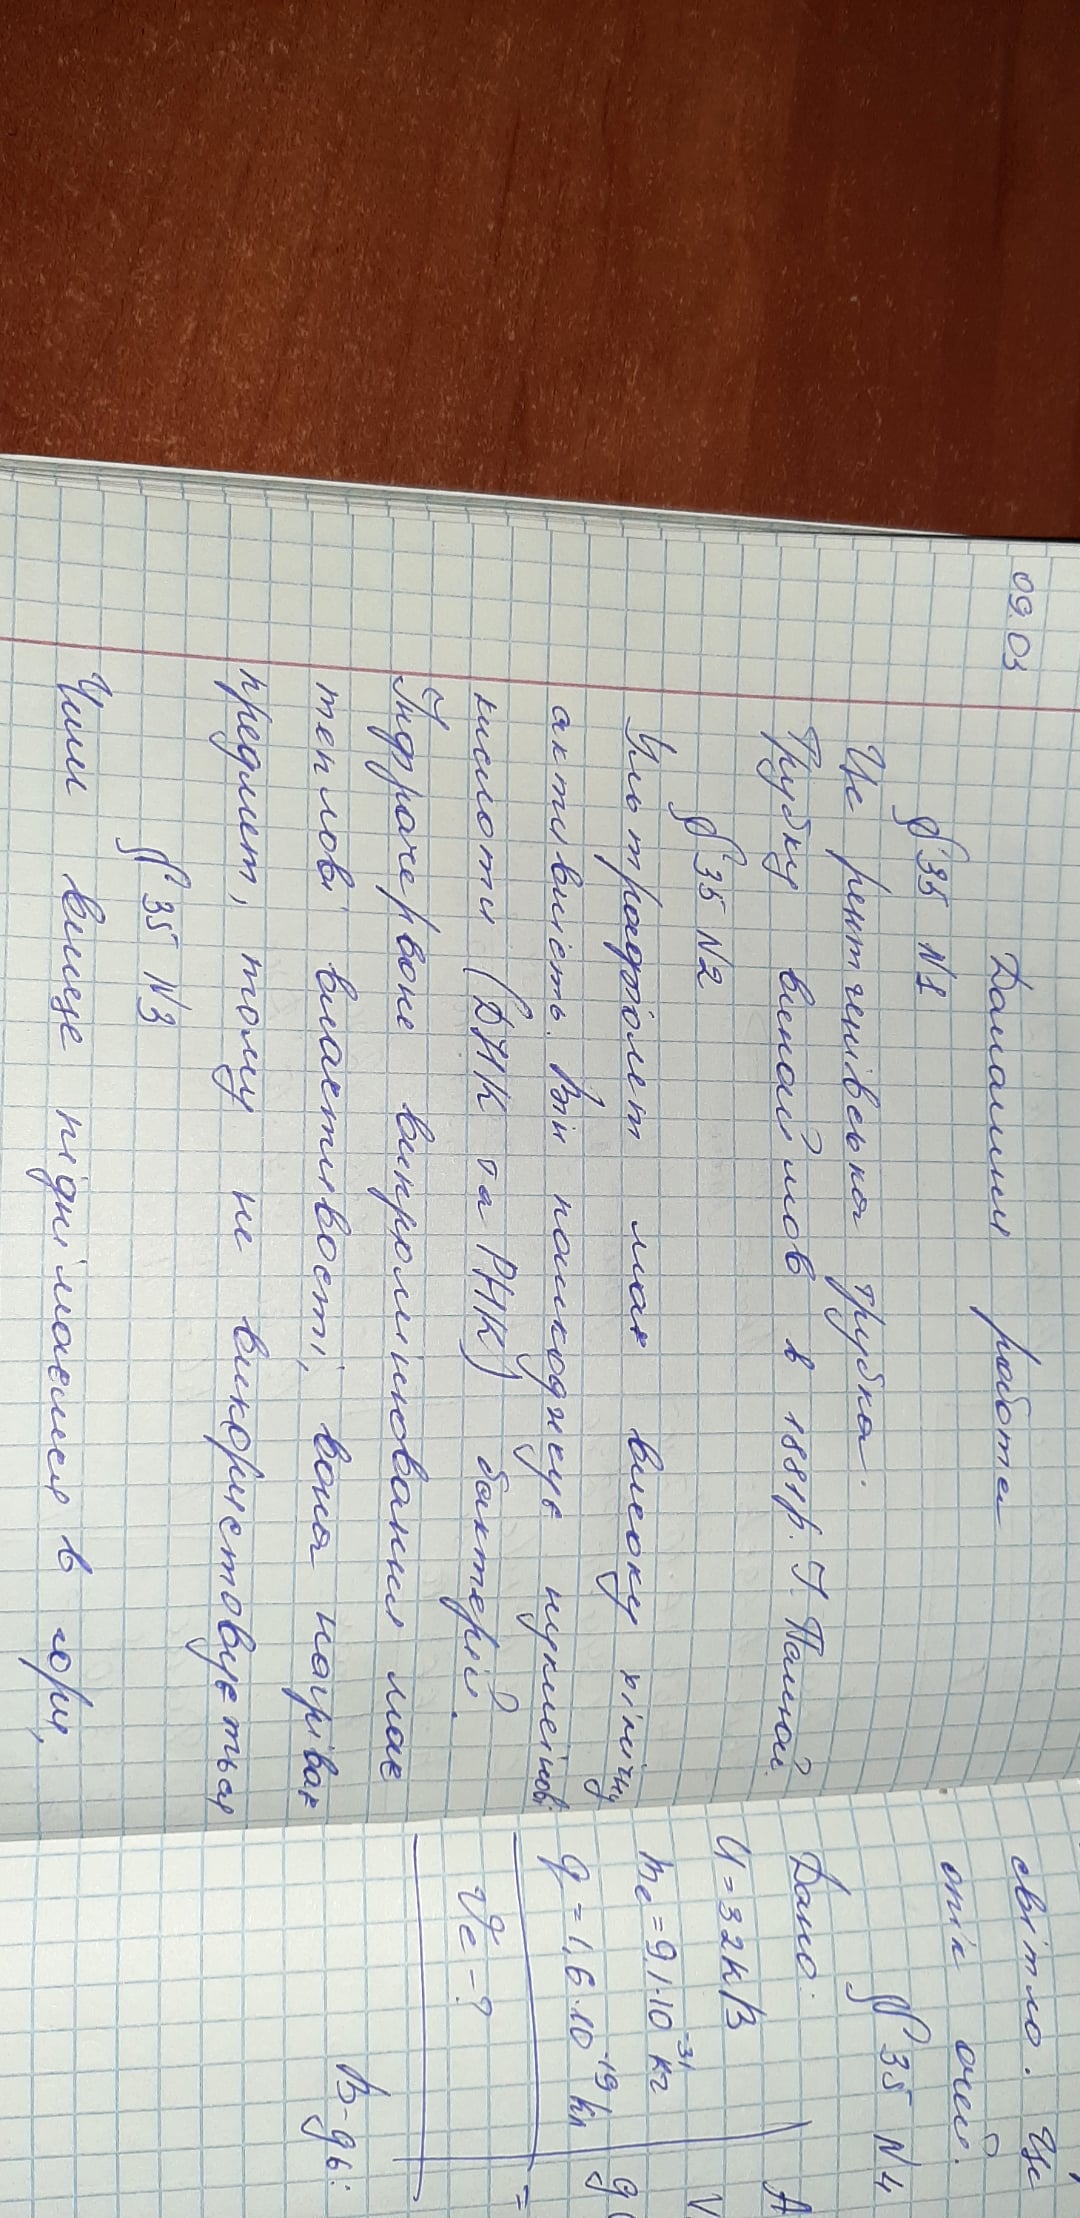 09.03
Домашня робота
§35 №1
Це рентгенівська трубка.
Трубку винайшов в 1881р. І. Палюй.
§35 №2
Ультрафіолет має високу хімічну
активність. Він пошкоджує нуклеїнові
кислоти (ДНК та РНК) бактерій.
Інфрачервоне випромінювання має
теплові властивості, вона нагріває
предмет, тому не використовується
§35 №3
Чим вище піднімаємся в гори,
світло. Це
опік очей.
§35 №4
Дано:
U=32кВ
me=9,1·10⁻³¹кг
q=1,6·10⁻¹⁹Кл
Ve-?
В-дь: